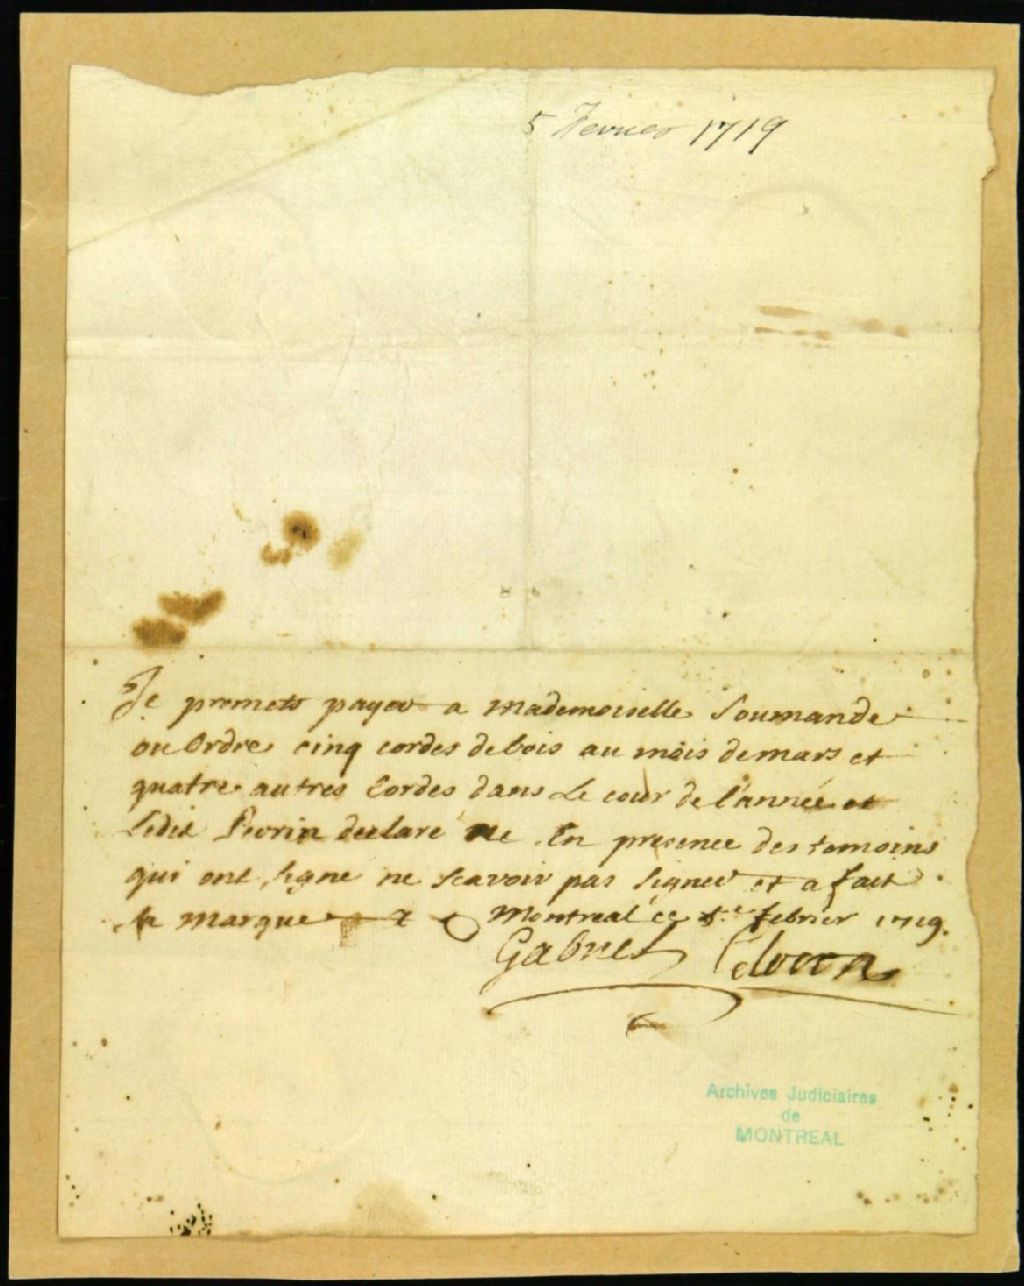 5 Fevrier 1719
Je promets payer a Mademoiselle Soumande
ou Ordre cinq cordes de bois au mois de mars et
quatre autres Cordes dans Le cour de l'année et
ledit declare En presence des temoins
qui ont signe ne scavoir pas signer et a fait
sa marque Montreal ce febrier 1719.
Gabriel
Archives Judiciaires
de
MONTREAL